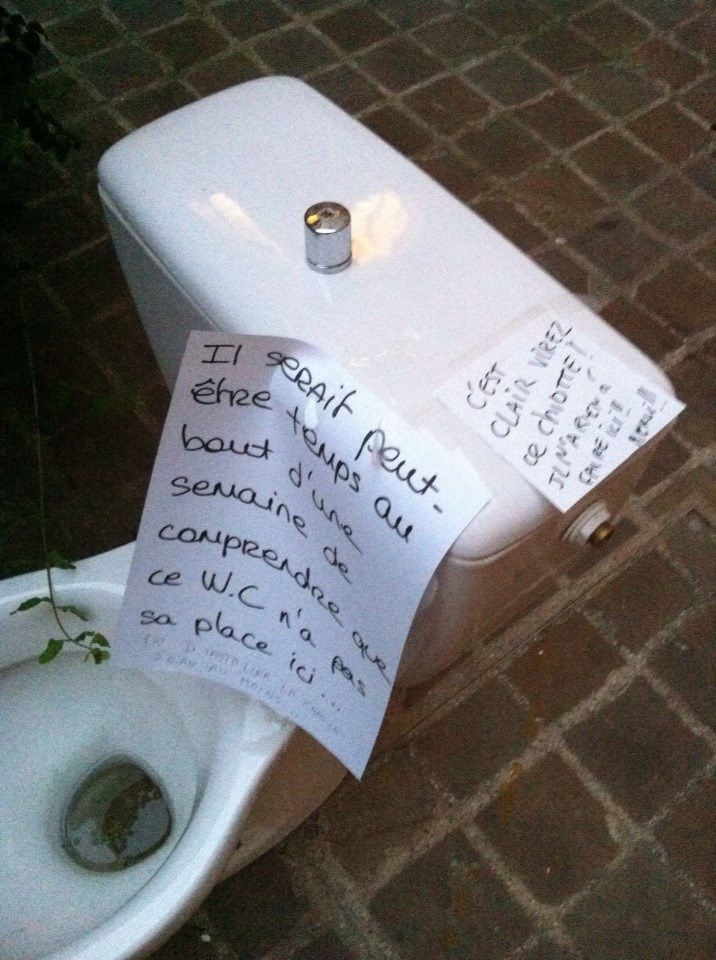 Il serait peut-
être temps au
bout d'une
semaine de
comprendre que
ce W.C n'a pas
sa place ici...
C'EST
CLAIR VIREZ
CE CHIOTTE!
IL N'A RIEN À
FAIRE ICI!!
MERCI!!